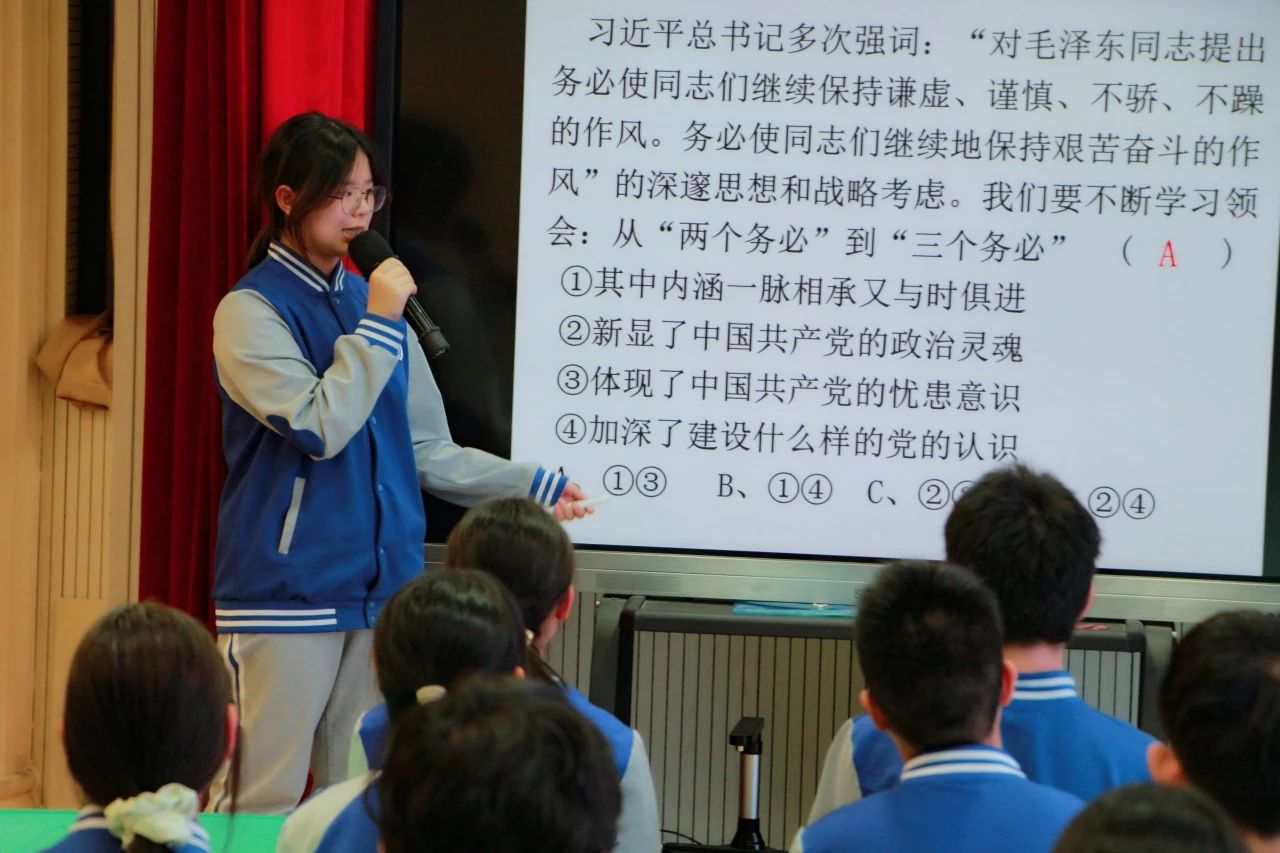 习近平总书记多次强词：“对毛泽东同志提出
务必使同志们继续保持谦虚、谨慎、不骄、不躁
的作风。务必使同志们继续地保持艰苦奋斗的作
风”的深邃思想和战略考虑。我们要不断学习领
会：从“两个务必”到“三个务必” （ A ）
①其中内涵一脉相承又与时俱进
②新显了中国共产党的政治灵魂
③体现了中国共产党的忧患意识
④加深了建设什么样的党的认识
①③ B、①④ C、② ②④